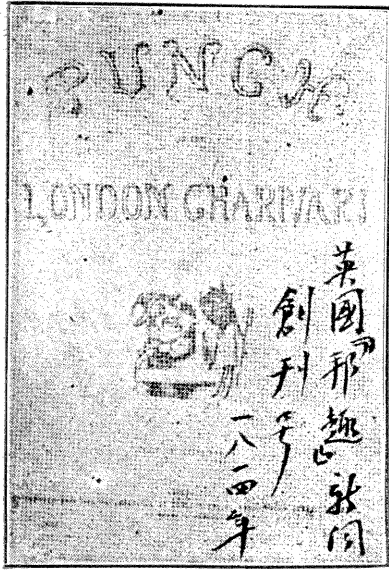 PUNCH
LONDON CHARIVARI
英國『邦趣』新聞
創刊号
一八一四年